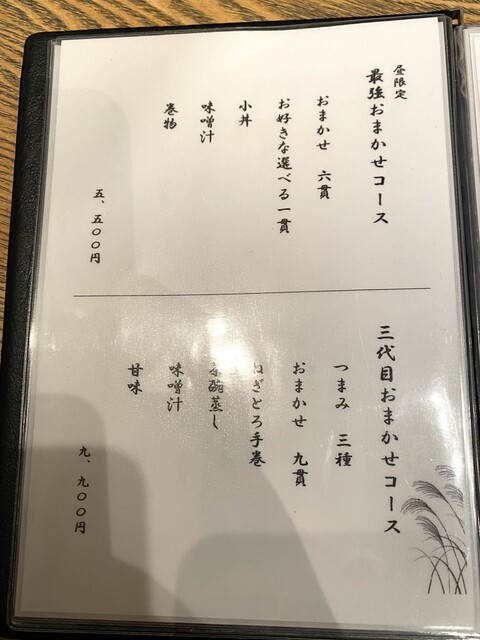 昼限定
最強おまかせコース
おまかせ 六貫
お好きな選べる一貫
小丼
味噌汁
巻物
五、五〇〇円
三代目おまかせコース
つまみ 三種
おまかせ 九貫
ねぎとろ手巻
茶碗蒸し
味噌汁
甘味
九、九〇〇円